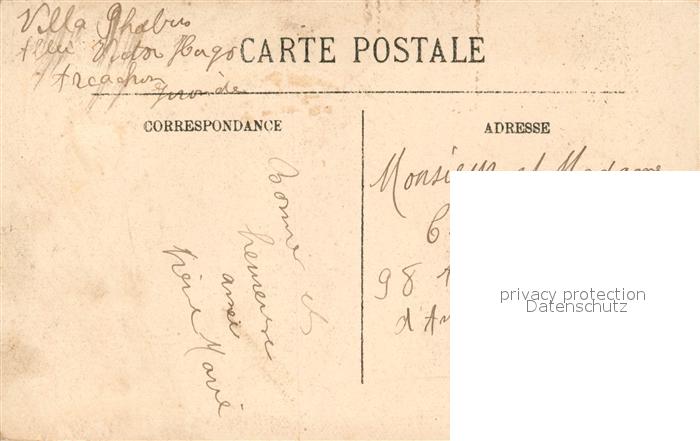 Villa Phœbus
Allée Victor Hugo
Arcachon
Gironde
CARTE POSTALE
CORRESPONDANCE
ADRESSE
Bonne et
heureuse
année
Marie
Monsieur et Madame
98
privacy protection
Datenschutz